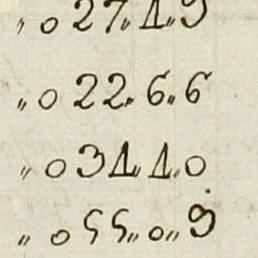 „ 0 27„ 1„ 9
„ 0 22„ 6„ 6
„ 0 31„ 1„ 0
„ 0 55„ 0„ 9